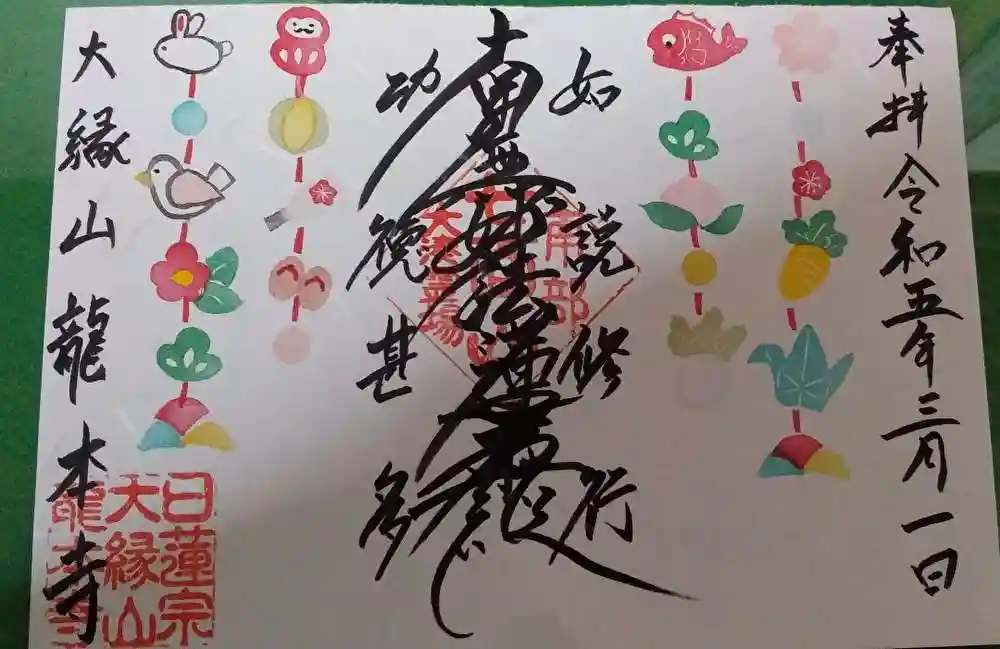 奉拝 令和五年三月一日
如説修行
南無妙法蓮華経
功徳甚多
大縁山 龍本寺
日蓮宗
大縁山
龍本寺